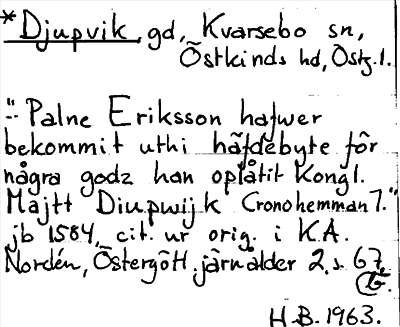 *Djupvik, gd, Kvarsebo sn,
Östkinds hd, Östg.l.
"- Palne Eriksson hafwer
bekommit uthi häfdebyte för
några godz han oplåtit Kongl.
Majtt Diupwijk Cronohemman 7."
jb 1584, cit. ur orig. i KA.
Nordén, Östergötl. järnålder 2, s. 67,
H.B. 1963.